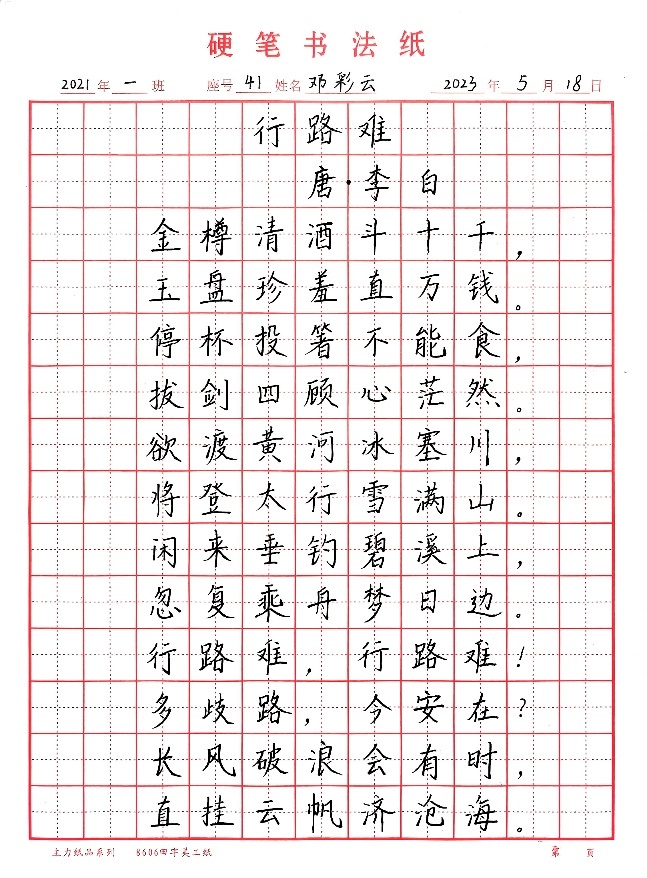 硬笔书法纸
2021年一班 座号41姓名邓彩云 2023年5月18日
行路难
唐·李白
金樽清酒斗十千，
玉盘珍羞直万钱。
停杯投箸不能食，
拔剑四顾心茫然。
欲渡黄河冰塞川，
将登太行雪满山。
闲来垂钓碧溪上，
忽复乘舟梦日边。
行路难，行路难！
多歧路，今安在？
长风破浪会有时，
直挂云帆济沧海。
主力纸品系列 8606田字美工纸 第 页